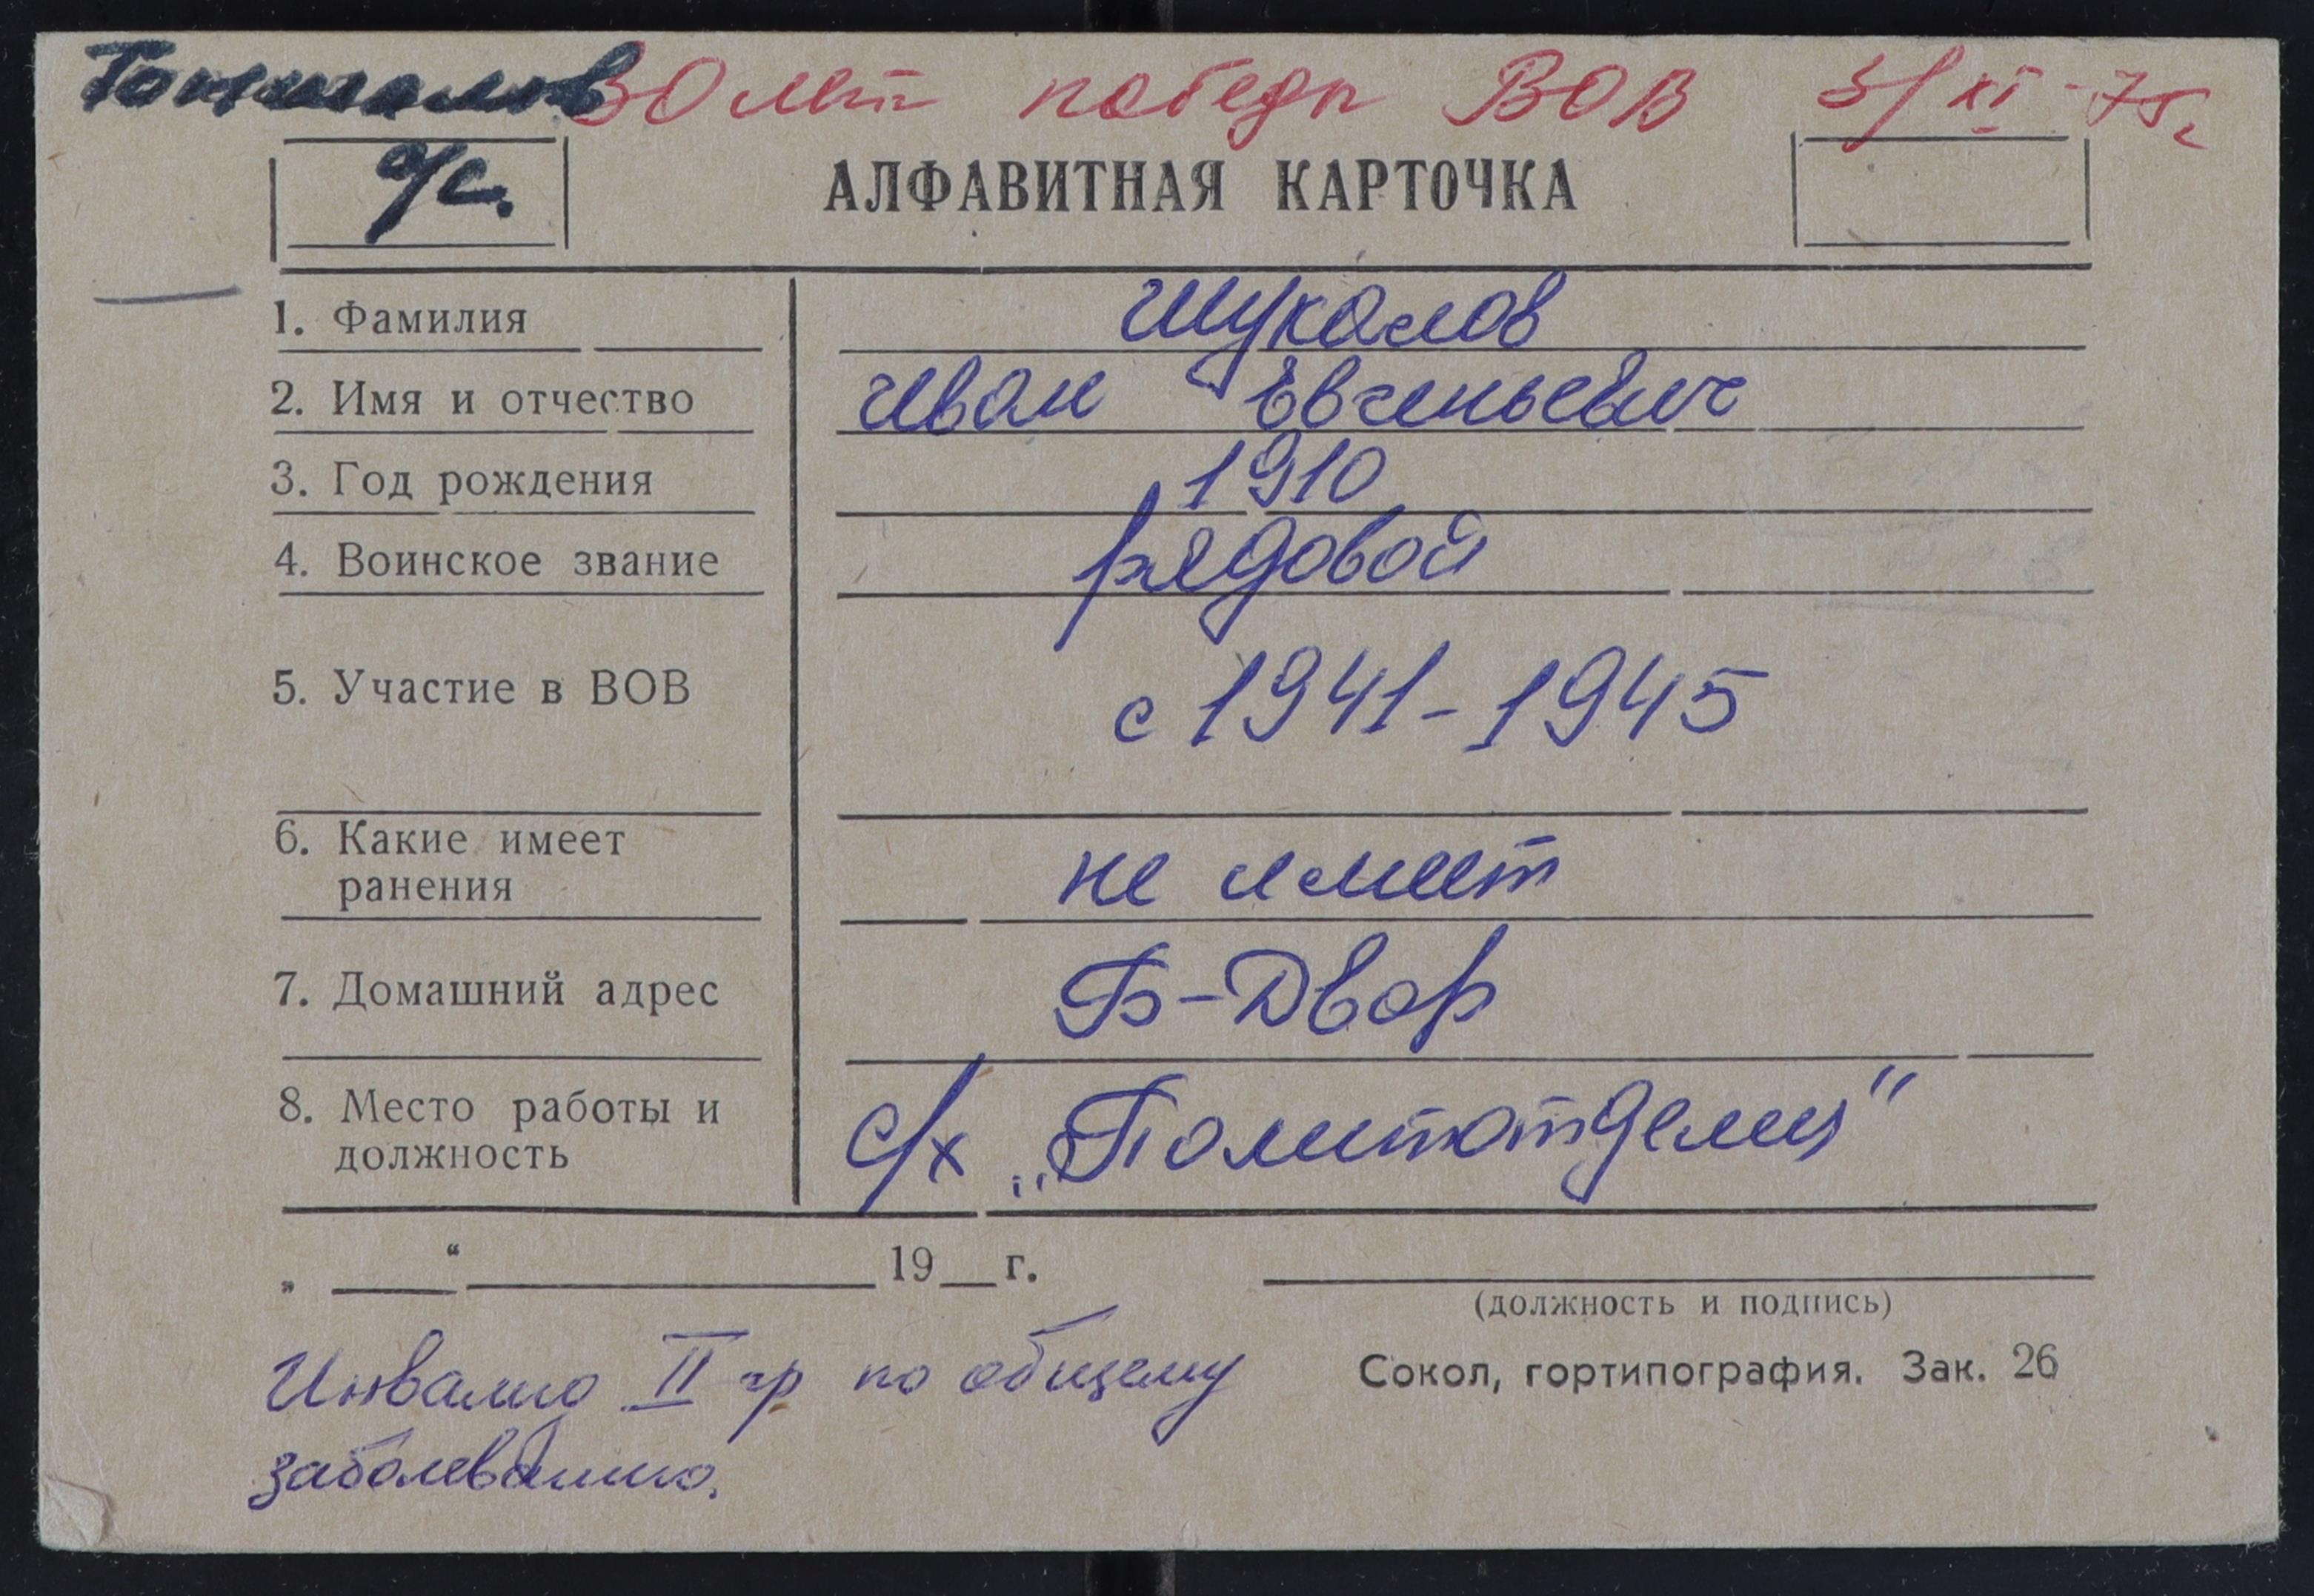 30 лет победы ВОВ 5/XI-75г
с/с.
АЛФАВИТНАЯ КАРТОЧКА
1. Фамилия Шукалов
2. Имя и отчество Иван Евгеньевич
3. Год рождения 1910
4. Воинское звание рядовой
5. Участие в ВОВ с 1941-1945
6. Какие имеет
ранения не имеет
7. Домашний адрес Б-Двор
8. Место работы и
должность с/х „Политотделец"
„ ____ “ ____ 19__г.
(должность и подпись)
Инвалид II гр по общему
заболеванию.
Сокол, гортипография. Зак. 26